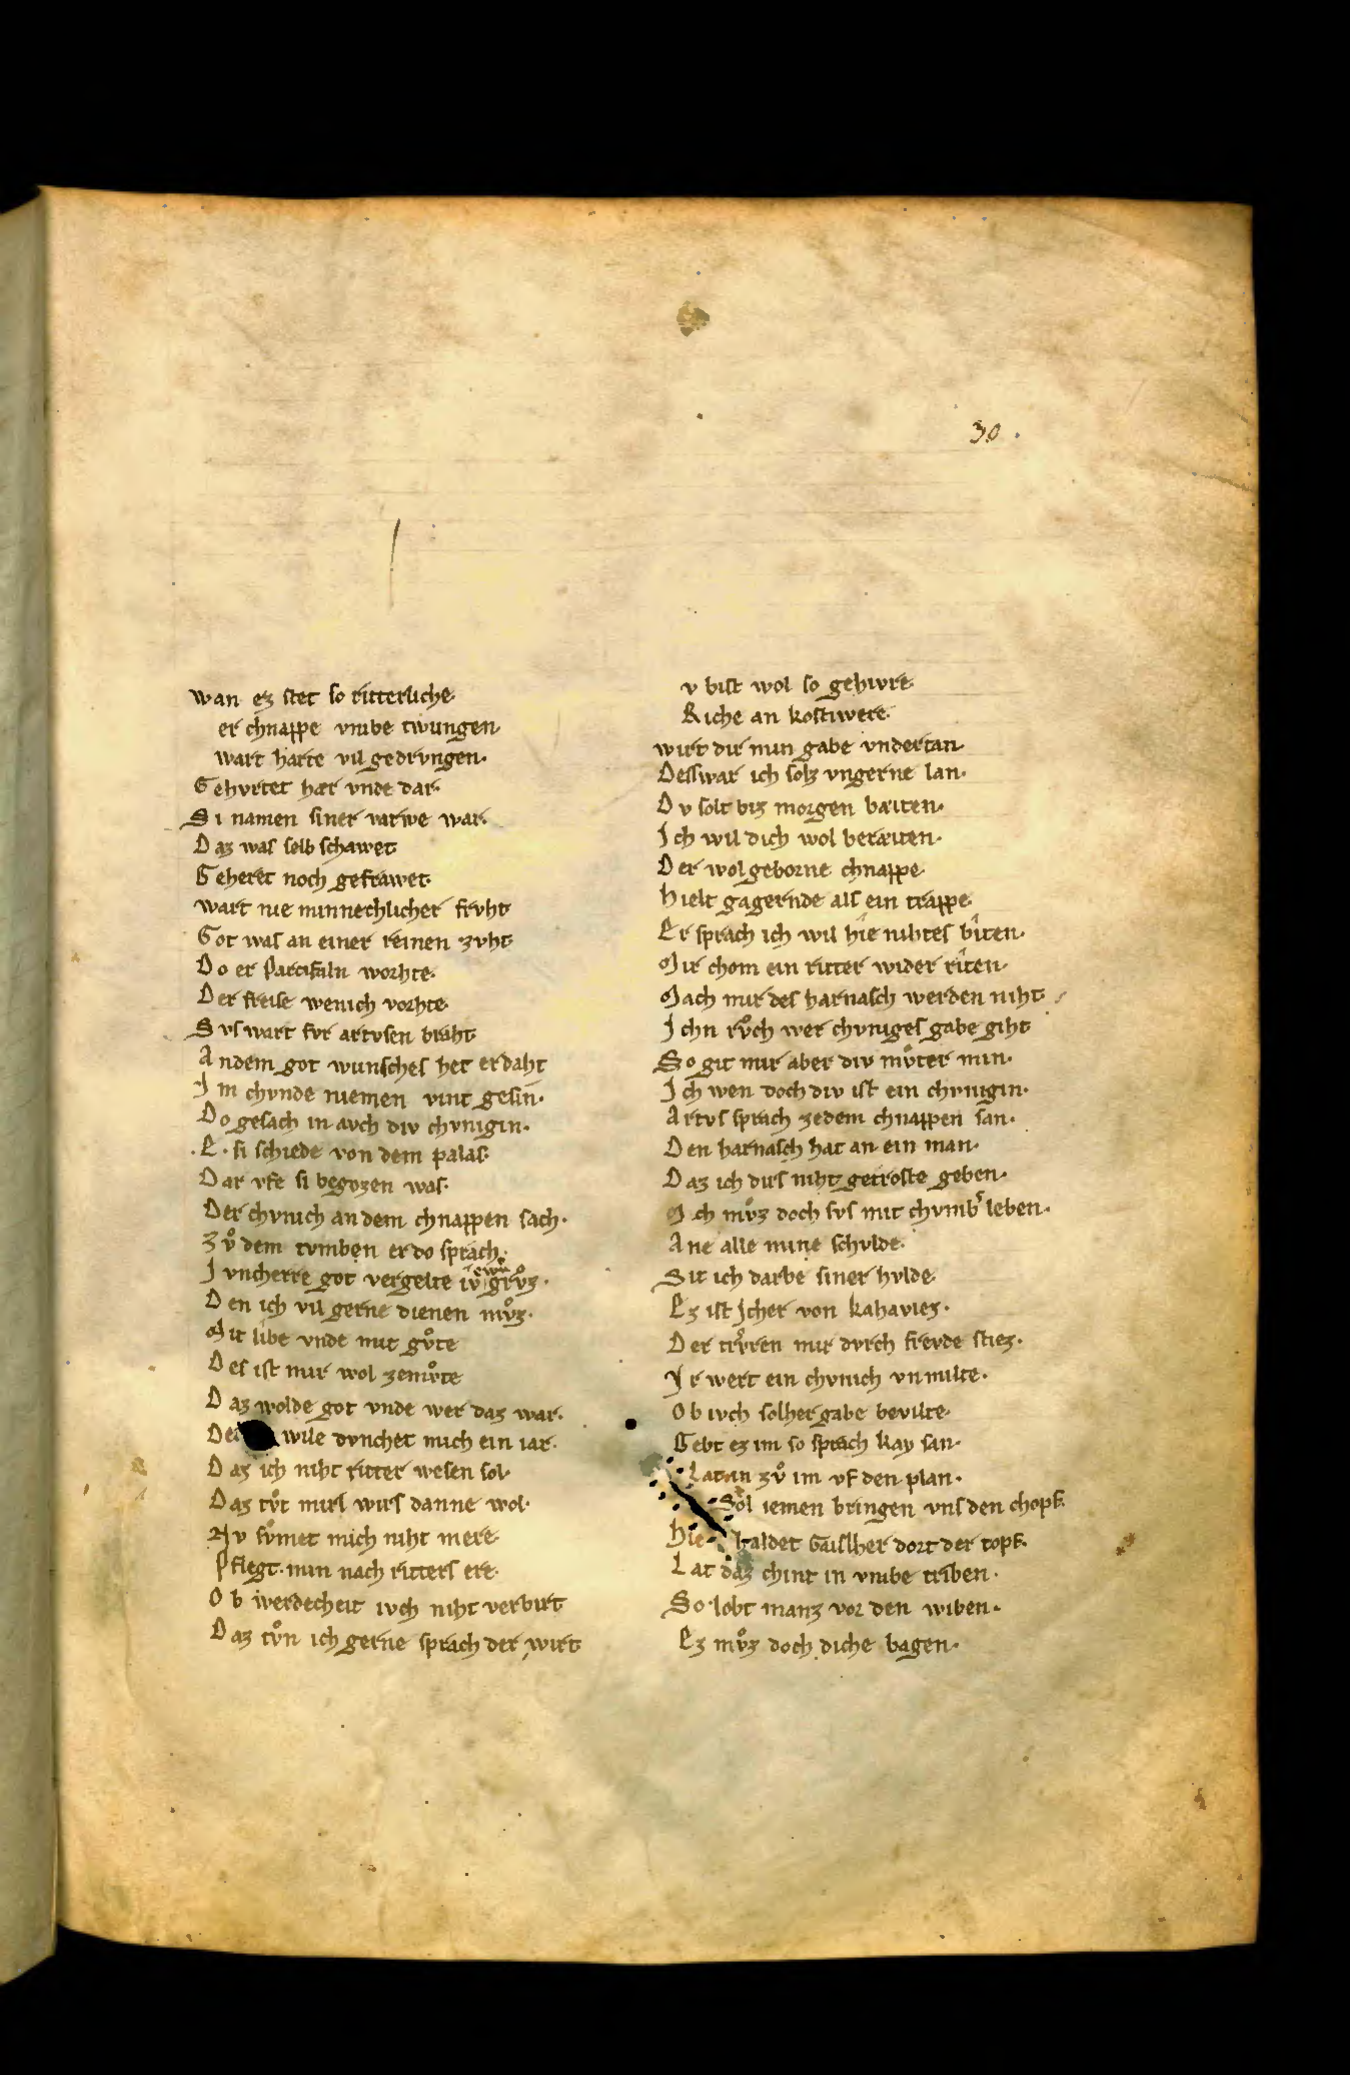 30.
wan ez stet so ritterliche
er chnappe vmbe twungen
wart harte vil gedrvngen·
Gehvrtet hær vnde dar·
Si namen siner varwe war·
Daz was selb schawet
Geheret noch gefrawet·
wart nie minnechlicher frvht
Got was an einer reinen zvht
Do er parcifaln worhte·
Der freise wenich vorhte
Svs wart fvr artvsen braht
Andem got wunsches het erdaht
Im chvnde niemen vint gesin·
Do gesach in avch div chvnigin·
·E· si schiede von dem palas·
Dar vfe si begozen was·
Der chvnich an dem chnappen sach·
Zvͦ dem tvmben er do sprach·
Ivncherre got vergelte iv ewͥn grvͦz·
Den ich vil gerne dienen mvͦz·
Mit libe vnde mit gvͦte
Des ist mir wol zemvͦte
Daz wolde got vnde wer daz war·
De wile dvnchet mich ein iar·
Daz ich niht ritter wesen sol·
Daz tvͦt mirs wirs danne wol·
Nv svͦmet mich niht mere
Pflegt·min nach ritters ere·
Ob werdecheit ivch niht verbirt
Daz tvͦn ich gerne sprach der wirt
v bist wol so gehivre
Riche an kostiwere·
wirt dir min gabe vndertan
Desswar ich solz vngerne lan·
Dv solt biz morgen bæiten·
Ich wil dich wol beræiten·
Der wol geborne chnappe
Hielt gagernde alſ ein trappe
Er sprach ich wil hie nihtes biten·
Mir chom ein ritter wider riten·
Mach mir des harnasch werden niht
Ichn rvͦch wer chvniges gabe giht
So git mir aber div mvͦter min·
Ich wen doch div ist ein chvnigin·
Artvs sprach zedem chnappen san·
Den harnasch hat an ein man·
Daz ich dirs niht getroste geben·
Ich mvͦz doch svs mit chvmb͛ leben·
Ane alle mine schvlde·
Sit ich darbe siner hvlde
Ez ist Jther von kahaviez·
Der trv͛ren mir dvrch frevde stiez·
Ir wert ein chvnich vnmilte·
Ob ivch solher gabe bevilte·
Gebt ez im so sprach kay san·
Lat in zvͦ im vf den plan·
Sol iemen bringen vns den chopf·
Hie haldet Gaislher dort der topf·
Lat daz chint in vmbe triben·
So·lobt manz vor den wiben·
Ez mvͦz doch diche bagen·